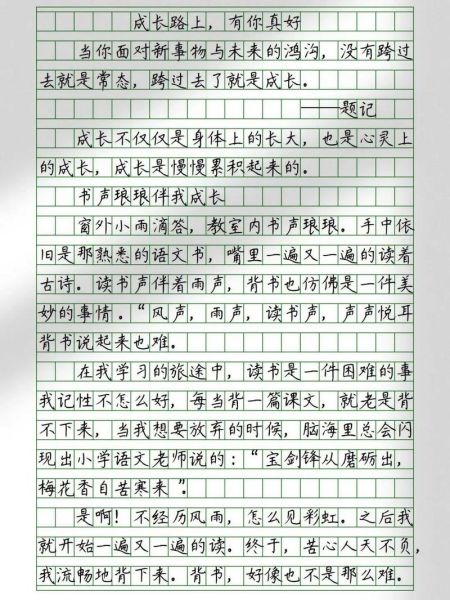 成长路上，有你真好
当你面对新事物与未来的鸿沟，没有跨过
去就是常态，跨过去了就是成长。
——题记
成长不仅仅是身体上的长大，也是心灵上
的成长，成长是慢慢累积起来的。
书声琅琅伴我成长
窗外小雨滴答，教室内书声琅琅。手中依
旧是那熟悉的语文书，嘴里一遍又一遍的读着
古诗。读书声伴着雨声，背书也仿佛是一件美
妙的事情。“风声，雨声，读书声，声声悦耳
背书说起来也难。
在我学习的旅途中，读书是一件困难的事
我记性不怎么好，每当背一篇课文，就老是背
不下来，当我想要放弃的时候，脑海里总会闪
现出小学语文老师说的：“宝剑锋从磨砺出，
梅花香自苦寒来”。
是啊！不经历风雨，怎么见彩虹。之后我
就开始一遍又一遍的读。终于，苦心人天不负，
我流畅地背下来。背书，好像也不是那么难。